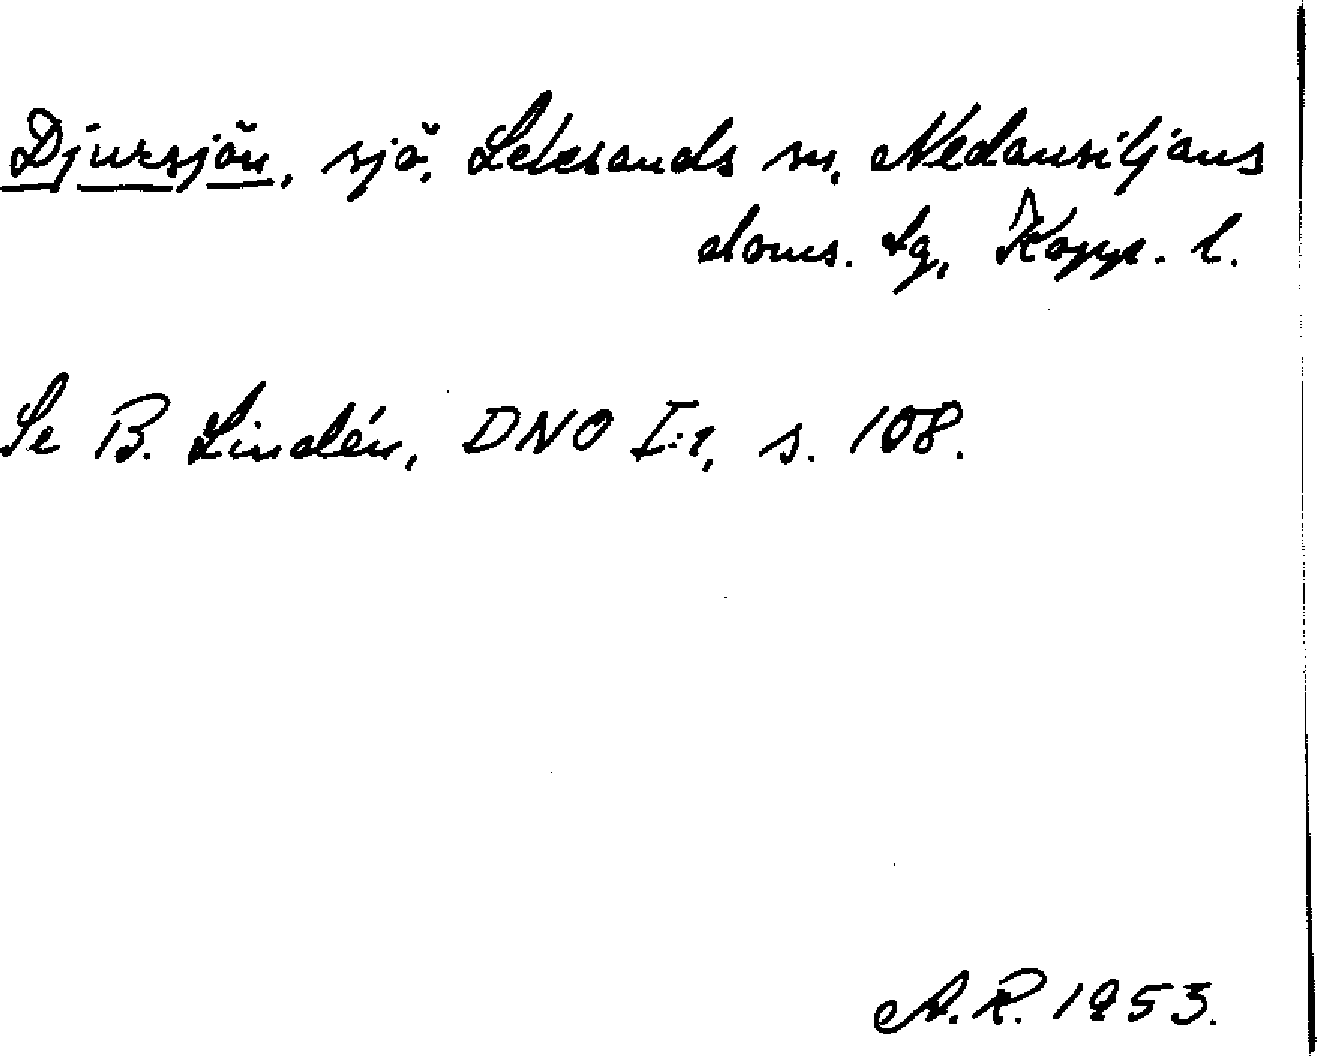 Djursjön, sjö, Leksands sn, Nedansiljans
doms. tg, Kopp. l.
Se B. Lindén, DNO I:1, s. 108.
A.R. 1953.